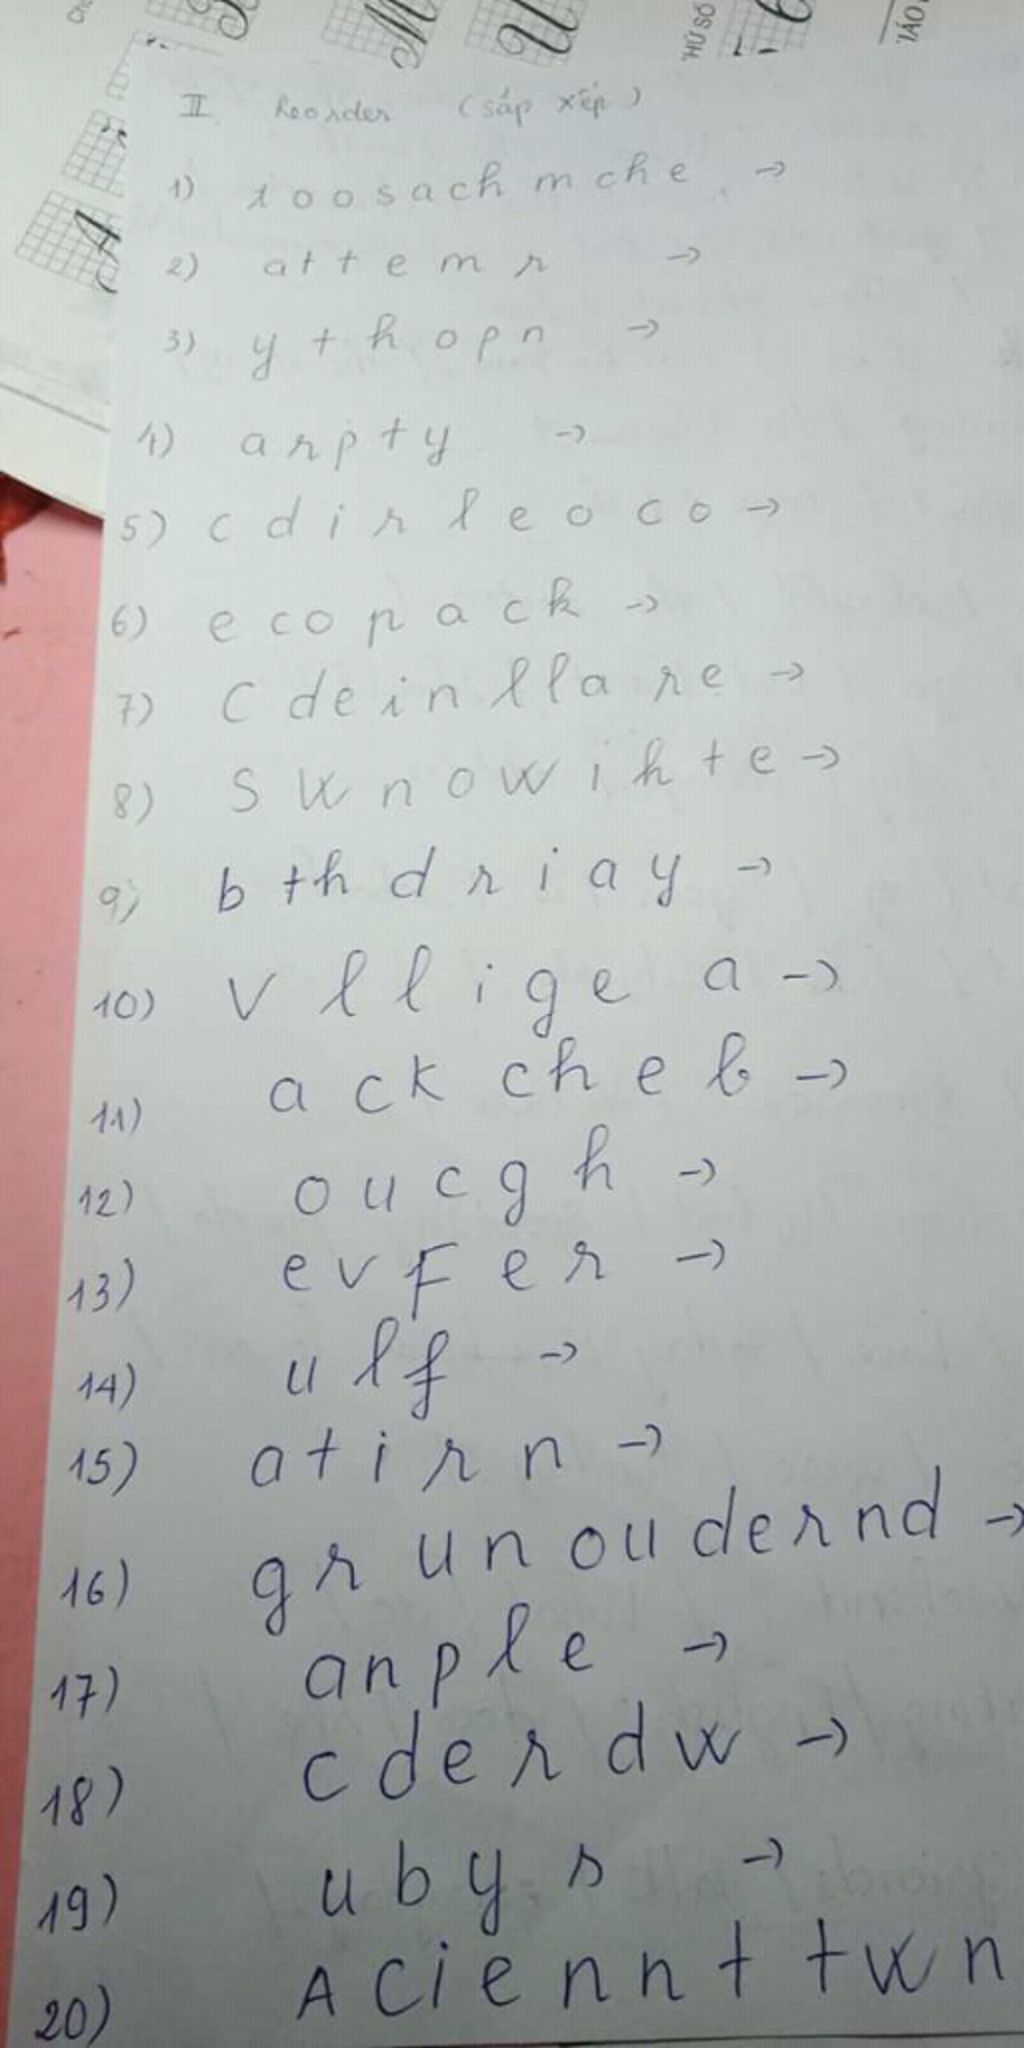 M
U
HỮ SỐ
6
A
II Reorder (sắp xếp)
1) ioosachmche →
2) attemr →
3) ythopn →
4) arpty →
5) cdirleoco →
6) ecopack →
7) Cdeinllare →
8) Swnowihte →
9) bthdriay →
10) vlligea →
11) ackcheb →
12) oucgh →
13) evFer →
14) ulf →
15) atirn →
16) grunoudernd →
17) anple →
18) cderdw →
19) ubys →
20) Aciennttwn